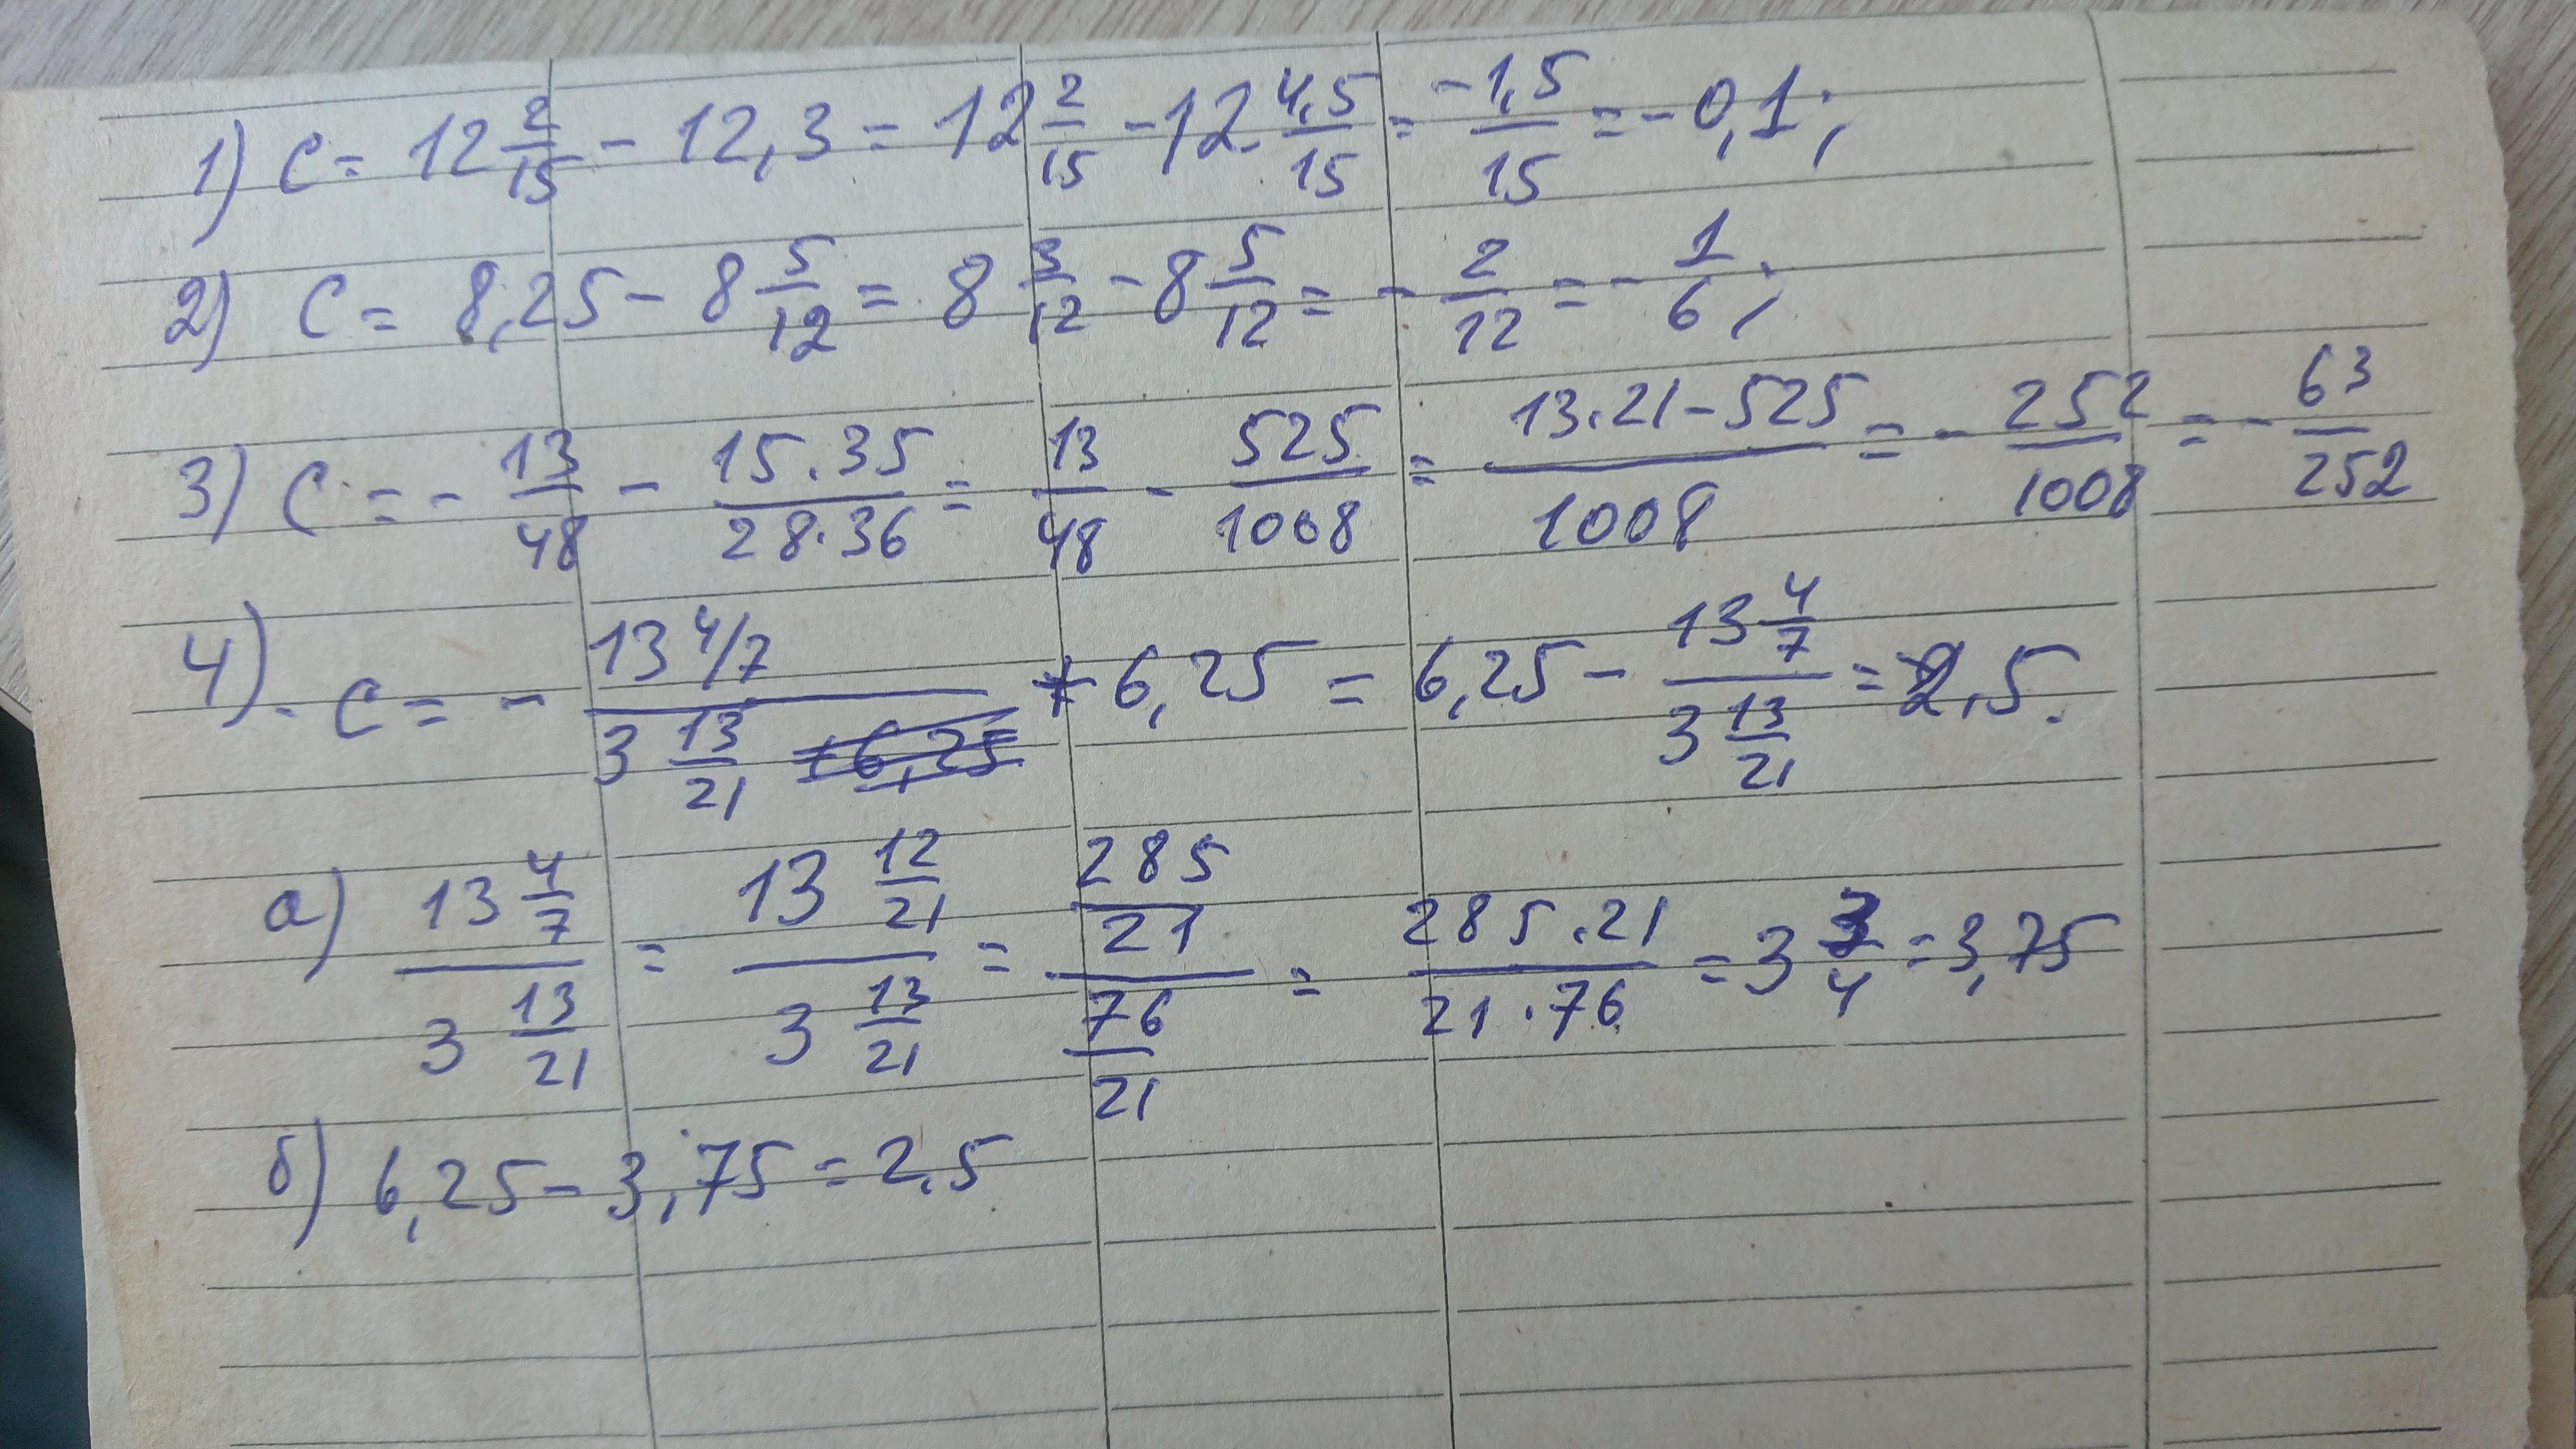 1) C = 12 2/15 - 12,3 = 12 2/15 - 12 4,5/15 = -1,5/15 = -0,1;
2) C = 8,25 - 8 5/12 = 8 3/12 - 8 5/12 = - 2/12 = - 1/6;
3) C = - 13/48 - 15.35/28.36 = 13/48 - 525/1008 = 13.21-525/1008 = - 252/1008 = - 63/252
4). C = - 13 4/7 / 3 13/21 + 6,25 = 6,25 - 13 4/7 / 3 13/21 = 2,5.
а) 13 4/7 / 3 13/21 = 13 12/21 / 3 13/21 = 285/21 / 76/21 = 285.21/21.76 = 3 3/4 = 3,75
б) 6,25 - 3,75 = 2,5